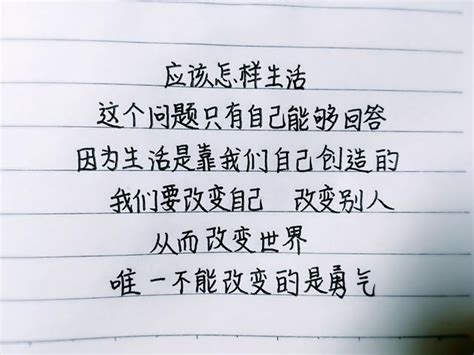 应该怎样生活
这个问题只有自己能够回答
因为生活是靠我们自己创造的
我们要改变自己 改变别人
从而改变世界
唯一不能改变的是勇气